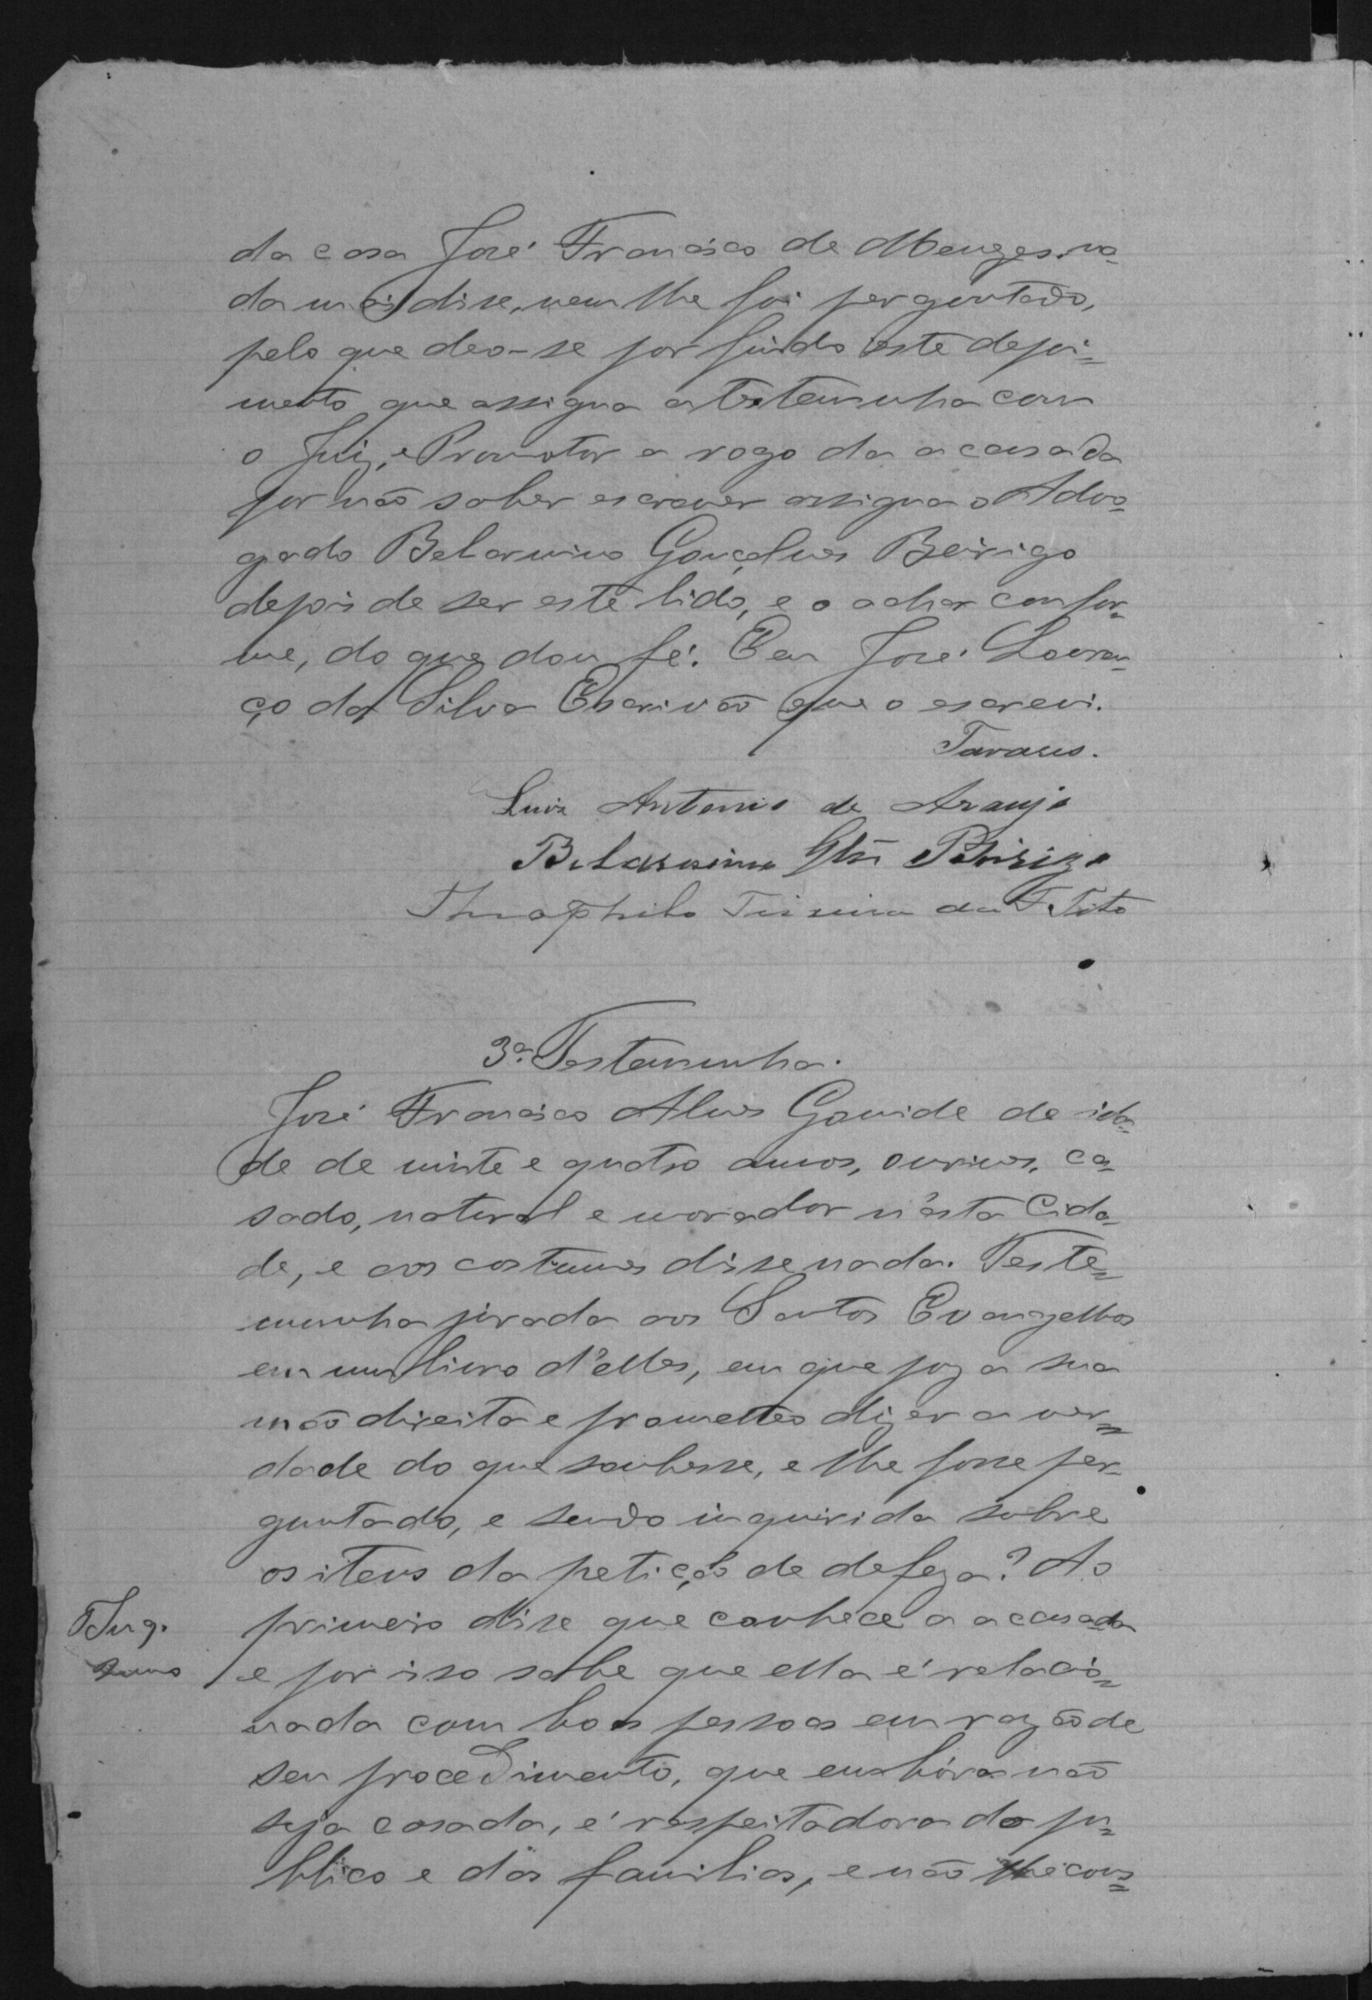 da casa José Francisco de Menezes, na-
da mais disse, nem lhe foi perguntado,
pelo que deo-se por findo este depoi=
mento que assigna a testemunha com
o Juiz, e Promotor a rogo da acusada
por não saber escrever assigna o Advo=
gado Belarmino Gonçalves Beirigo
depois de ser este lido, e o achar confor=
me, do que dou fé. Eu José Louren=
ço da Silva Escrivão que o escrevi.
Tavares.
Luiz Antonio de Araujo
Belarmino Glz Beirigo
Theophilo Teixeira da F. Tito
3ª Testemunha.
José Francisco Alves Gouvide de ida=
de de vinte e quatro annos, ourives, ca=
sado, natural e morador n'esta Cida-
de, e aos costumes disse nada. Teste=
munha jurada aos Santos Evangelhos
em um livro d'elles, em que poz a sua
mão direita e prometteo dizer a ver=
dade do que soubesse, e lhe fosse per-
guntado, e sendo inquirida sobre
os itens da petição de defeza? Ao
primeiro disse que conhece a acusada
e por isso sabe que ella é relacio=
nada com boas pessoas em razão de
seu procedimento, que embóra não
seja casada, é respeitadora do pu=
blico e das familias, e não lhe cons=